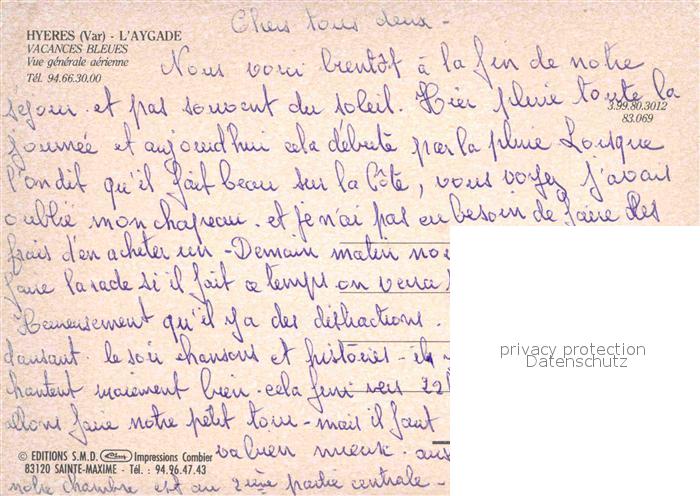 Chers tous deux -
HYERES (Var) - L'AYGADE
VACANCES BLEUES
Vue générale aérienne
Tél. 94.66.30.00
Nous voici bientôt à la fin de notre
séjour. et pas souvent du soleil. Hier pluie toute la
3.99.80.3012
83.069
journée et aujourdhui cela débute par la pluie Lorsque
l'on dit qu'il fait beau sur la Côte, vous voyez j'avais
oublié mon chapeau. et je n'ai pas eu besoin de faire des
frais d'en acheter un - Demain matin
faire la rade si il fait ce temps on verra
Heureusement qu'il y a des distractions.
dansant. le soir chansons et histoires - ils
chantent vraiment bien. cela fini vers 22
allons faire notre petit tour - mais il faut
va bien mieux.
privacy protection
Datenschutz
© EDITIONS S.M.D. Impressions Combier
83120 SAINTE-MAXIME - Tél. : 94.96.47.43
notre chambre est au 2ème partie centrale -